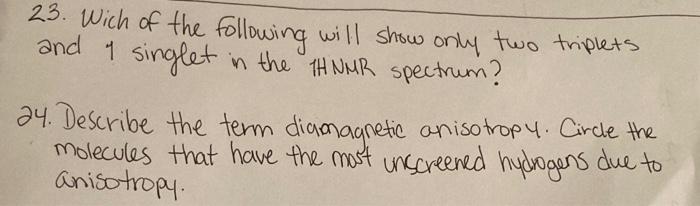 23. Wich of the following will show only two triplets
and 1 singlet in the 1H NMR spectrum?
24. Describe the term diamagnetic anisotropy. Circle the
molecules that have the most unscreened hydrogens due to
anisotropy.